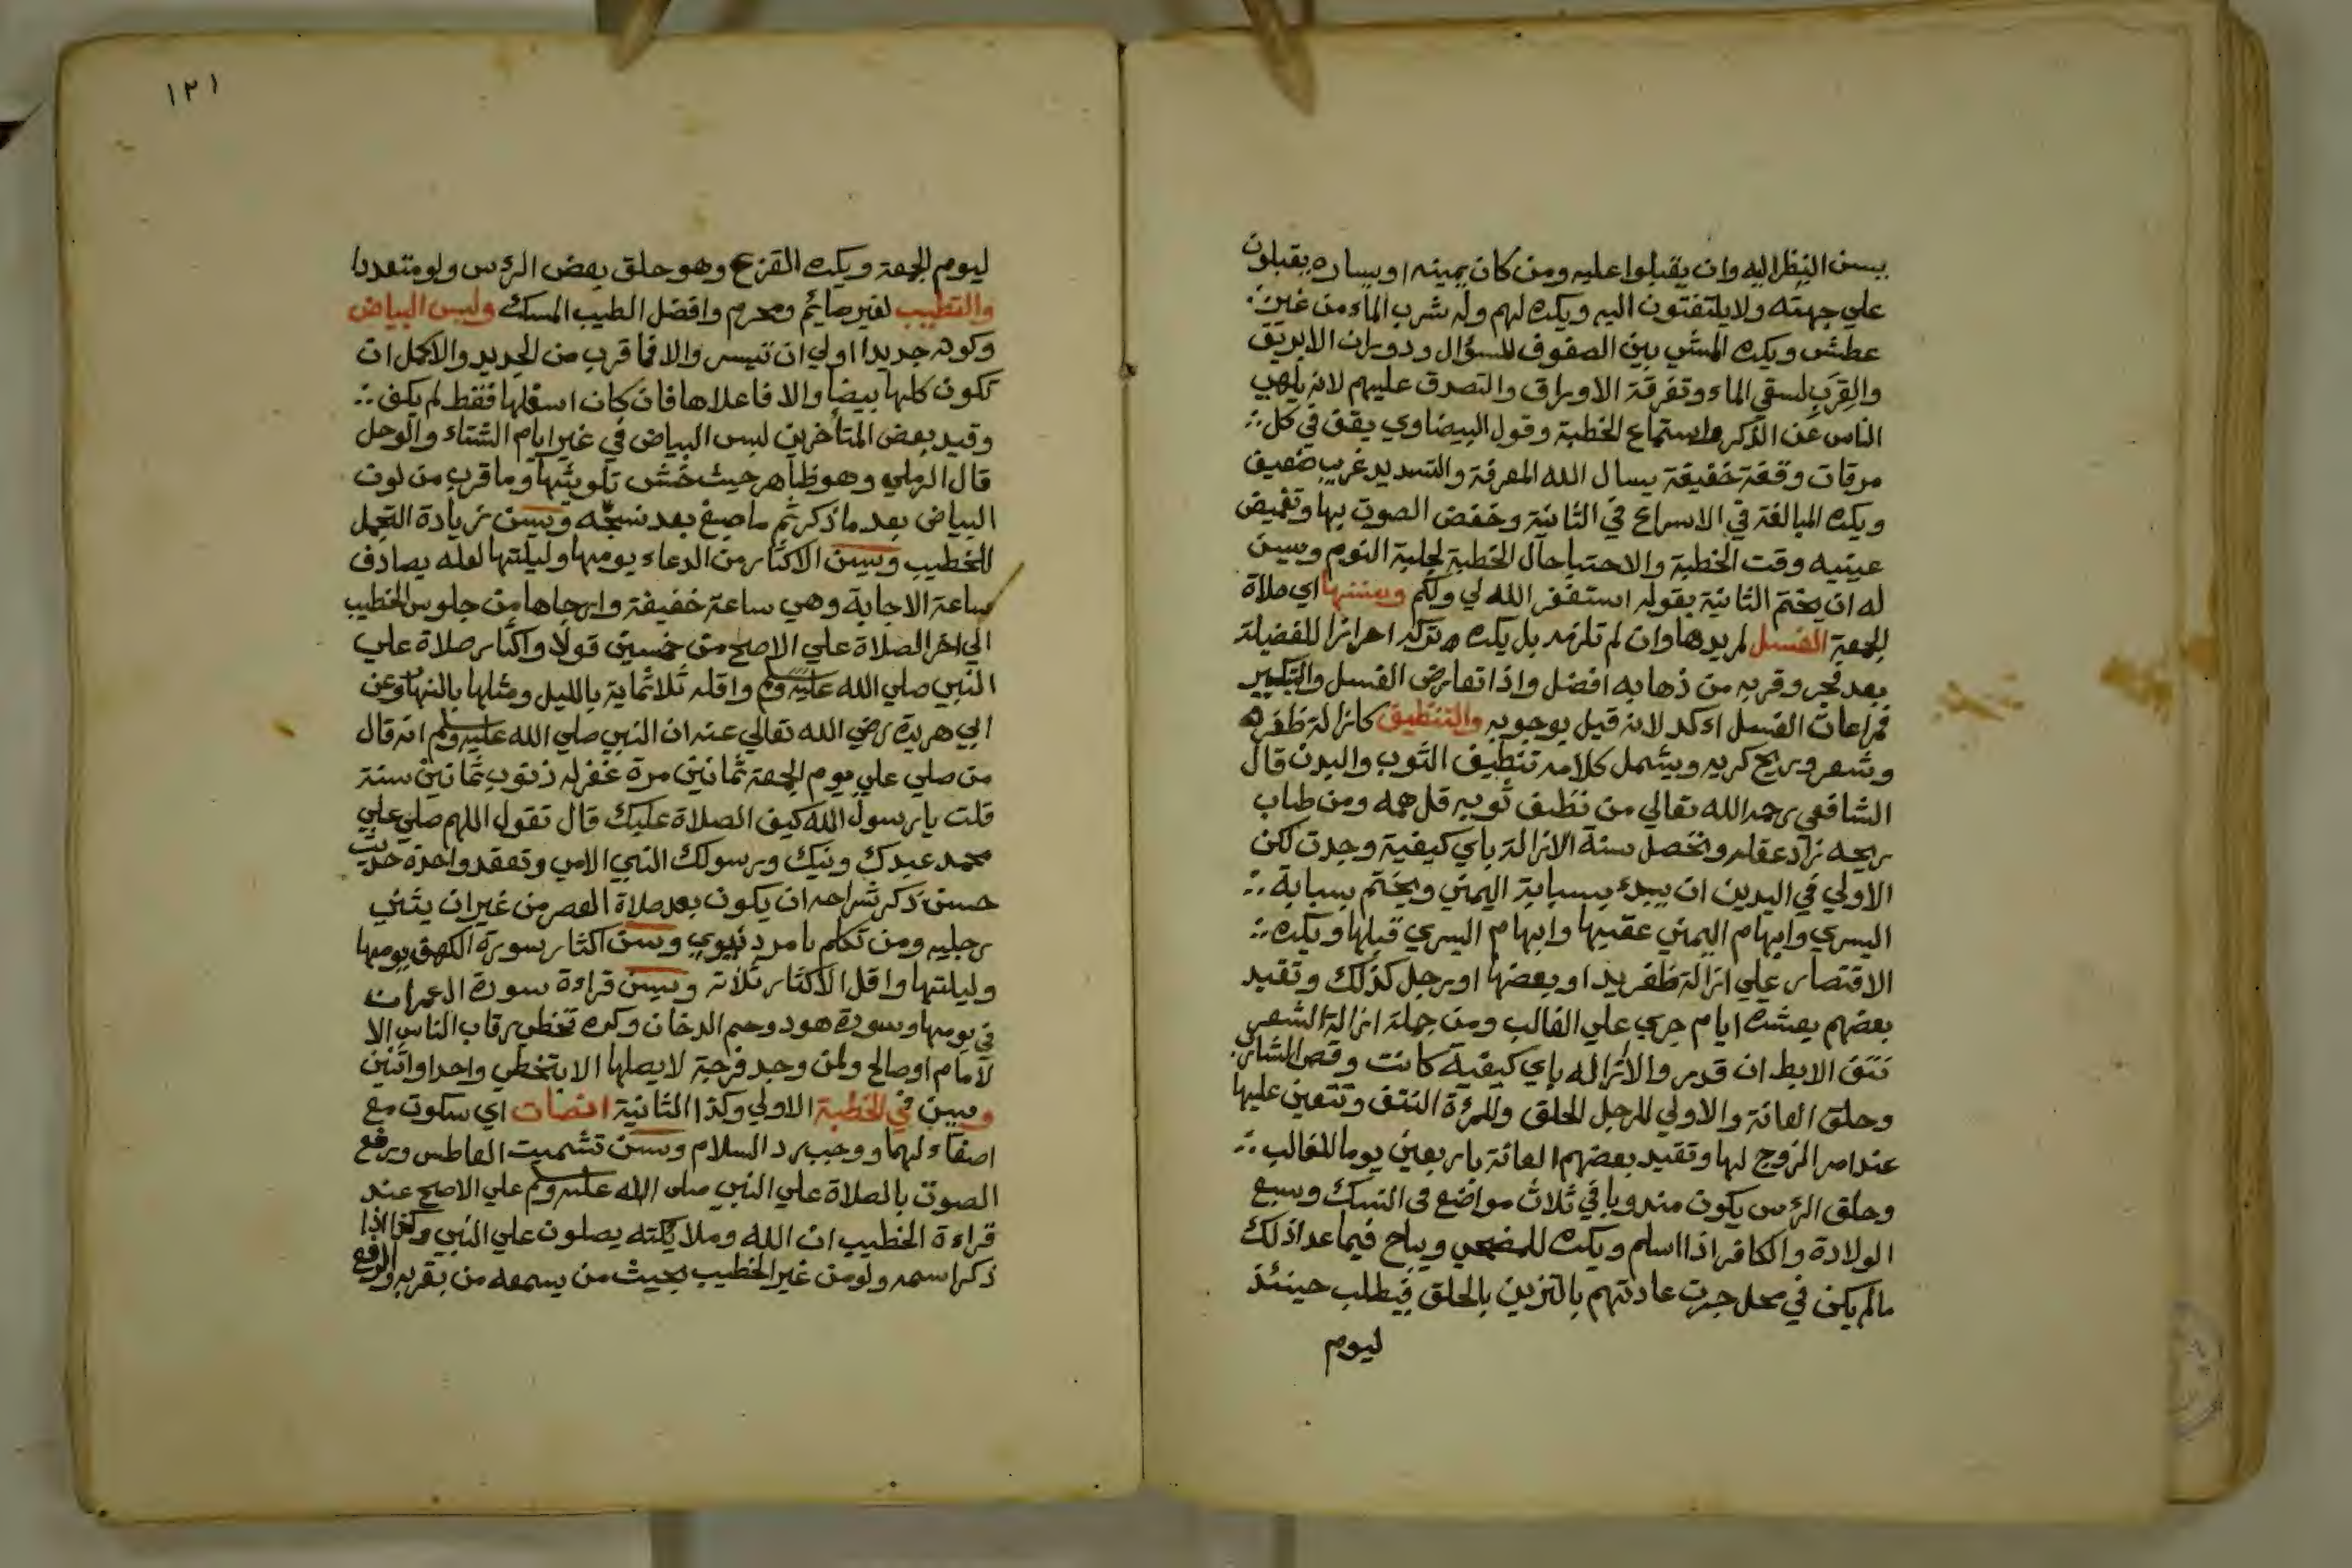 يسن النظر اليه وان يقبلوا عليه ومن كان يمينه او يساره يقبلون
علي جهته ولا يلتفتون اليه ويكره لهم وله شرب الماء من غير
عطش ويكره المشي بين الصفوف للسؤال ودوران الابريق
والقرب لسقي الماء وتفرقة الاوراق والتصدق عليهم لانه يلهي
الناس عن الذكر واستماع الخطبة وقول البيضاوي يقف في كل
مرقات وقفة خفيفة يسال الله المعرفة والتسديد غريب ضعيف
ويكره المبالغة في الاسراع في الثانية وخفض الصوت بها وتغميض
عينيه وقت الخطبة والاحتبا حال الخطبة لجلبة النوم وسن
له ان يختم الثانية بقوله استغفر الله لي ولكم ويسنها اي صلاة
الجمعة الغسل لمريدها وان لم تلزمه بل يكره تركه احرازا للفضيلة
بعد فجر وقربه من ذهابه افضل واذا تعارض الغسل والتبكير
فمراعات الغسل اءكد لانه قيل بوجوبه والتنظيف كازالة ظفره
وشعر وريح كريه ويشمل كلامه تنظيف الثوب والبدن قال
الشافعي رحمه الله تعالي من نظف ثوبه قل همه ومن طاب
ريحه زاد عقله وتحصل سنة الازالة باي كيفية وجدت لكن
الاولي في اليدين ان يبدء بسبابة اليمني ويختم بسبابة
اليسري وابهام اليمني عقبها وابهام اليسري قبلها ويكره
الاقتصار علي ازالة ظفر يد او بعضها او رجل كذلك وتقيد
بعضهم بعشرة ايام جري علي الغالب ومن جملة ازالة الشعر
نتف الابط ان قدر والا ازاله باي كيفية كانت وقص الشارب
وحلق العانة والاولي للرجل الحلق وللمرءة النتف وتتعين عليها
عند امر الزوج لها وتقيد بعضهم العانة باربعين يوما للغالب
وحلق الرءس يكون مندوبا في ثلاث مواضع في النسك وسبع
الولادة والكافر اذا اسلم ويكره للمضحي ويباح فيما عدا ذلك
مالم يكن في محل جرت عادتهم بالتزين بالحلق فيطلب حينئذ
ليوم
١٢١
ليوم الجمعة ويكره القزع وهو حلق بعض الرءس ولو متعددا
والتطيب لغير صايم ومحرم وافضل الطيب المسك ولبس البياض
وكونه جديدا اولي ان تيسر والا فما قرب من الجديد والاكمل ان
تكون كلها بيضا والا فاعلاها فان كان اسفلها فقط لم يكف
وقيد بعض المتأخرين لبس البياض في غير ايام الشتاء والوحل
قال الرملي وهو ظاهر حيث خشي تلويثها وما قرب من لون
البياض بعد ما ذكر ثم ما صبغ بعد نسجه ويسن زيادة التجمل
للخطيب ويسن الاكثار من الدعاء يومها وليلتها لعله يصادف
ساعة الاجابة وهي ساعة خفيفة وارجاها من جلوس الخطيب
الي اخر الصلاة علي الاصح من خمسين قولا واكثار صلاة علي
النبي صلي الله عليه وسلم واقله ثلاثماية بالليل ومثلها بالنهار وعن
ابي هريرة رضي الله تعالي عنه ان النبي صلي الله عليه وسلم انه قال
من صلي علي يوم الجمعة ثمانين مرة غفر له ذنوب ثمانين سنة
قلت يا رسول الله كيف الصلاة عليك قال تقول اللهم صلي علي
محمد عبدك ونبيك ورسولك النبي الامي وتعقد واحدة حديث
حسن ذكر شراحه ان يكون بعد صلاة العصر من غير ان يثني
رجليه ومن تكلم بامر دنيوي وسن اكثار سورة الكهف يومها
وليلتها واقل الاكثار ثلاثة ويسن قراءة سورة ال عمران
في يومها وسورة هود وحم الدخان وكره تخطي رقاب الناس الا
لامام او صالح ولمن وجد فرجة لا يصلها الا بتخطي واحد او اثنين
وسن في الخطبة الاولي وكذا الثانية انصات اي سكوت مع
اصغاء لهما ووجب رد السلام وسن تشميت العاطس ورفع
الصوت بالصلاة علي النبي صلى الله عليه وسلم علي الاصح عند
قراءة الخطيب ان الله وملايكته يصلون علي النبي وكذا اذا
ذكر اسمه ولو من غير الخطيب بحيث من يسمعه من بقربه والرفع